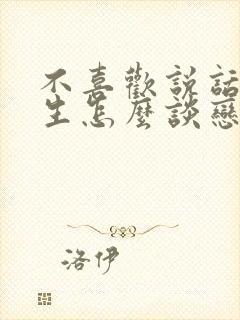 不喜歡説話
生怎麼談戀
洛伊